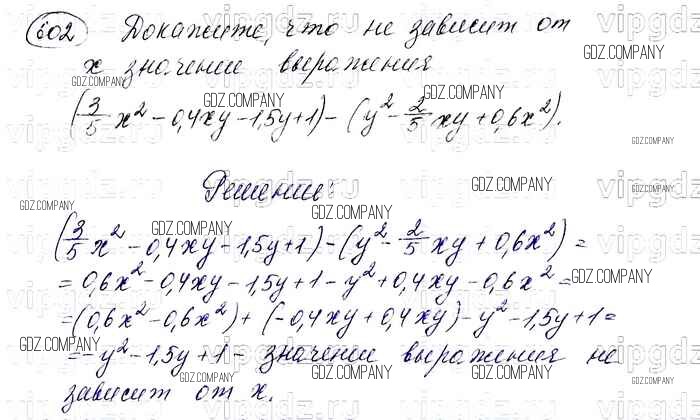 602 Докажите, что не зависит от
x значение выражения
(3/5 x² - 0,4xy - 1,5y + 1) - (y² - 2/5 xy + 0,6x²).
Решение:
(3/5 x² - 0,4xy - 1,5y + 1) - (y² - 2/5 xy + 0,6x²) =
= 0,6x² - 0,4xy - 1,5y + 1 - y² + 0,4xy - 0,6x² =
= (0,6x² - 0,6x²) + (-0,4xy + 0,4xy) - y² - 1,5y + 1 =
= -y² - 1,5y + 1 - значение выражения не
зависит от x.
GDZ.COMPANY
vipgdz.ru